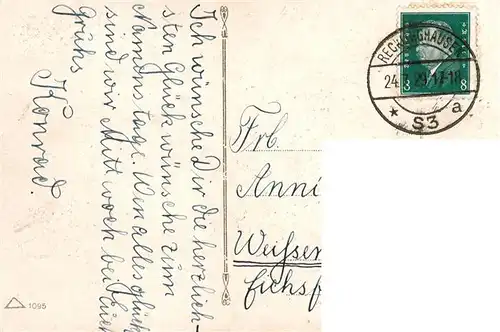 Ich wünsche Dir die herzlich-
sten Glückwünsche zum
Namenstage. Wen alles glückt
sind wir Mittwoch bei Euch
grühs
Konrad.
Frl.
Anni
Weissen
Eichsf
RECKLINGHAUSEN
24.7.29.17-18
* S3 a
8 8
1095